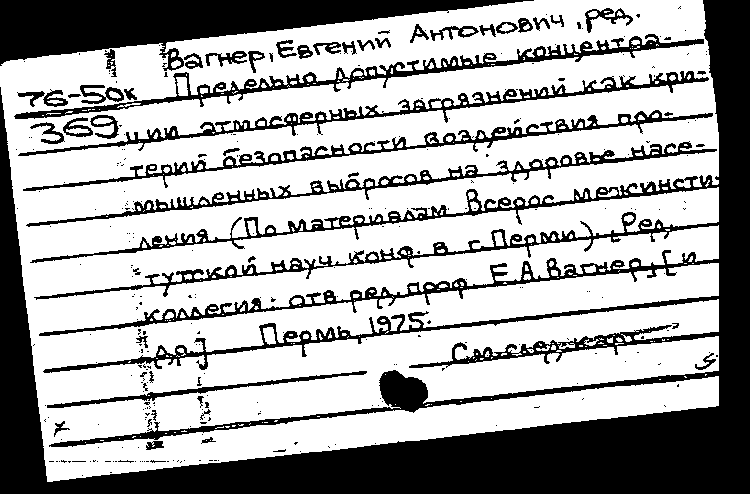 Вагнер, Евгений Антонович, ред.
76-50к
369
Предельно допустимые концентра-
ции атмосферных загрязнений как кри-
терий безопасности воздействия про-
мышленных выбросов на здоровье насе-
ления. (По материалам Всерос. межинсти-
тутской науч. конф. в г. Перми). [Ред.
коллегия: отв. ред. проф. Е.А. Вагнер, [и
др.] Пермь, 1975.
См. след. карт.